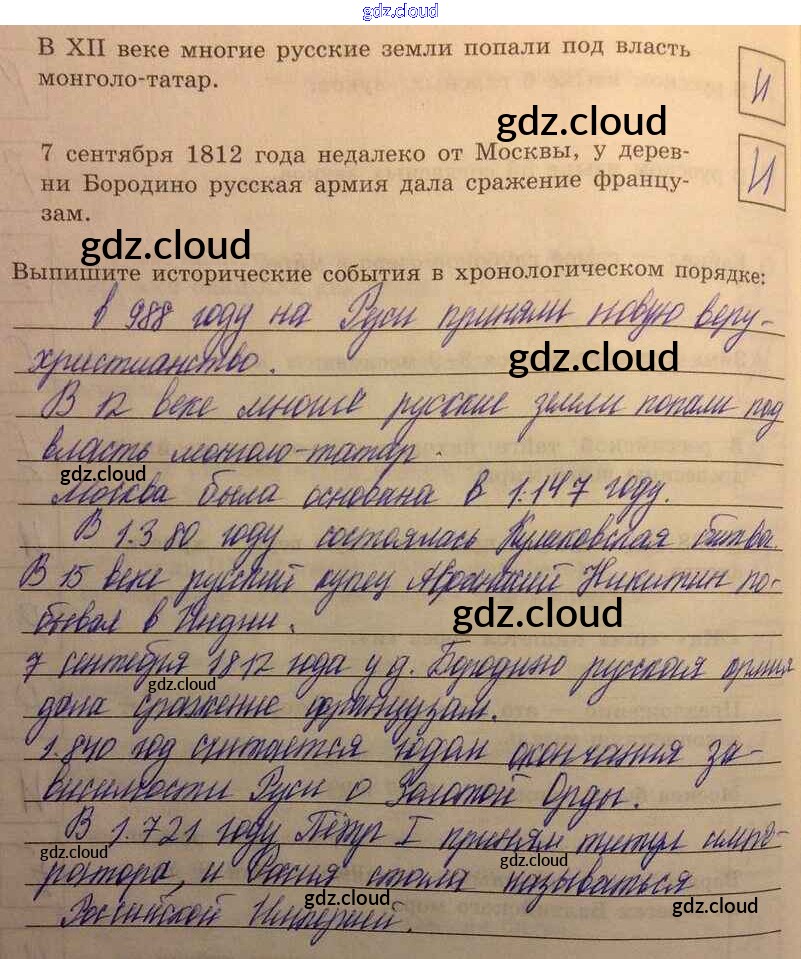 gdz.cloud
В XII веке многие русские земли попали под власть
монголо-татар.
И
gdz.cloud
7 сентября 1812 года недалеко от Москвы, у дерев-
ни Бородино русская армия дала сражение францу-
зам.
И
gdz.cloud
Выпишите исторические события в хронологическом порядке:
в 988 году на Руси приняли новую веру-
христианство.
gdz.cloud
В 12 веке многие русские земли попали под
власть монголо-татар.
gdz.cloud
Москва была основана в 1.147 году.
В 1.380 году состоялась Куликовская битва.
В 15 веке русский купец Афанасий Никитин по-
бывал в Индии.
gdz.cloud
7 сентября 1812 года у д. Бородино русская армия
gdz.cloud
дала сражение французам.
1.840 год считается годом окончания за-
висимости Руси о Золотой Орды.
В 1.721 году Пётр I принял титул импе-
gdz.cloud
gdz.cloud
ратора, и Россия стала называться
Российской Империей.
gdz.cloud
gdz.cloud